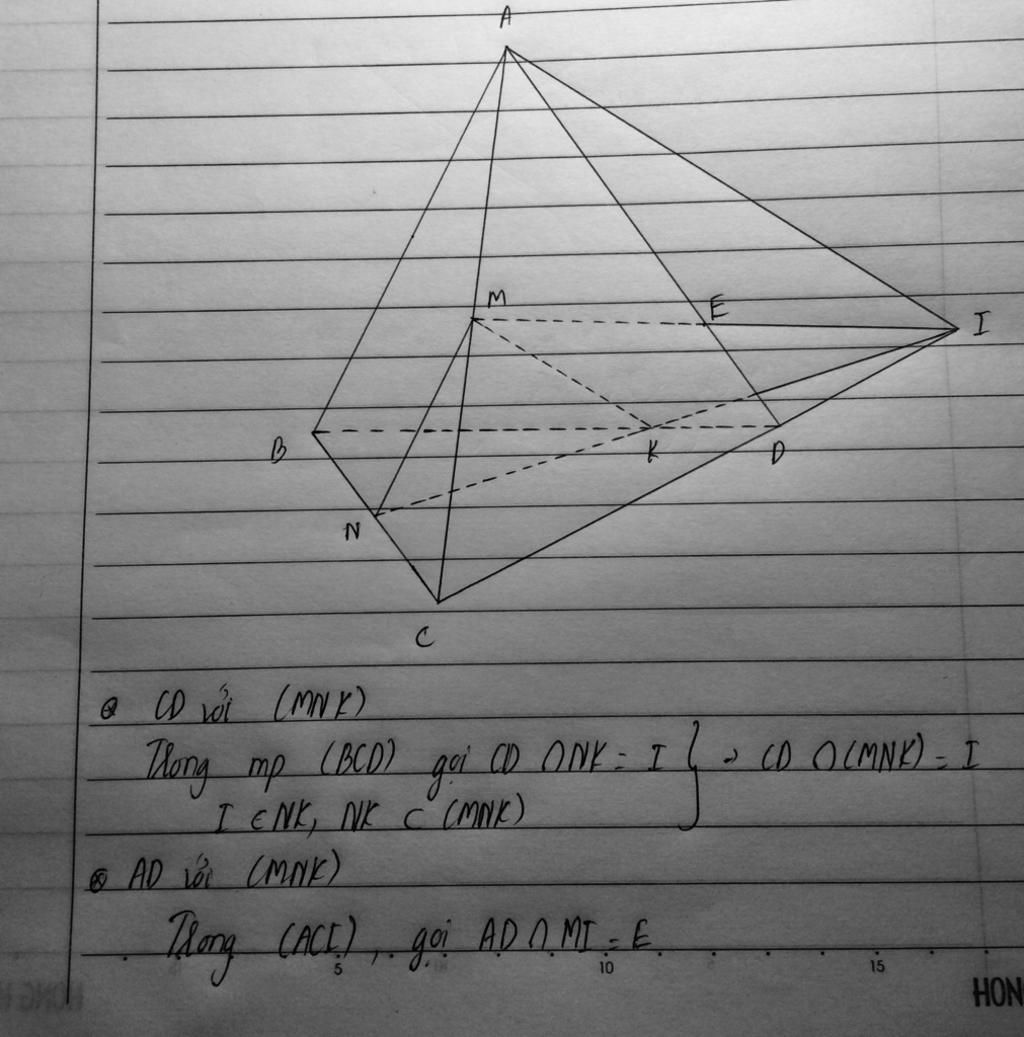 A
M
E
I
B
K
D
N
C
CD với (MNK)
Trong mp (BCD) gọi CD ∩ NK = I } → CD ∩ (MNK) = I
I ∈ NK, NK ⊂ (MNK)
AD với (MNK)
Trong (ACI), gọi AD ∩ MI = E
5 10 15
HON